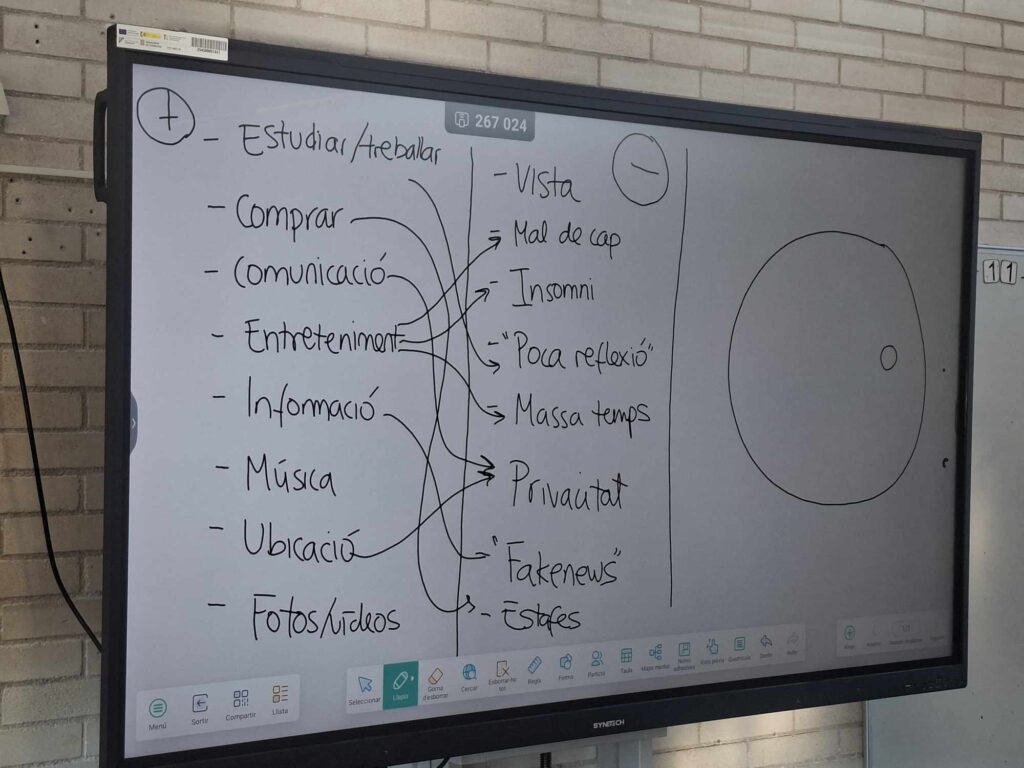 +
- Estudiar/treballar
- Comprar
- Comunicació
- Entreteniment
- Informació
- Música
- Ubicació
- Fotos/vídeos
267 024
-
- Vista
- Mal de cap
- Insomni
- "Poca reflexió"
- Massa temps
Privacitat
"Fakenews"
- Estafes
11
Menú
Sortir
Compartir
Llista
Seleccionar
Llapis
Goma d'esborrar
Cercar
Esborrar-ho tot
Regla
Forma
Partició
Taula
Mapa mental
Notes adhesives
Vista prèvia
Desfer
Refer
SYNETECH